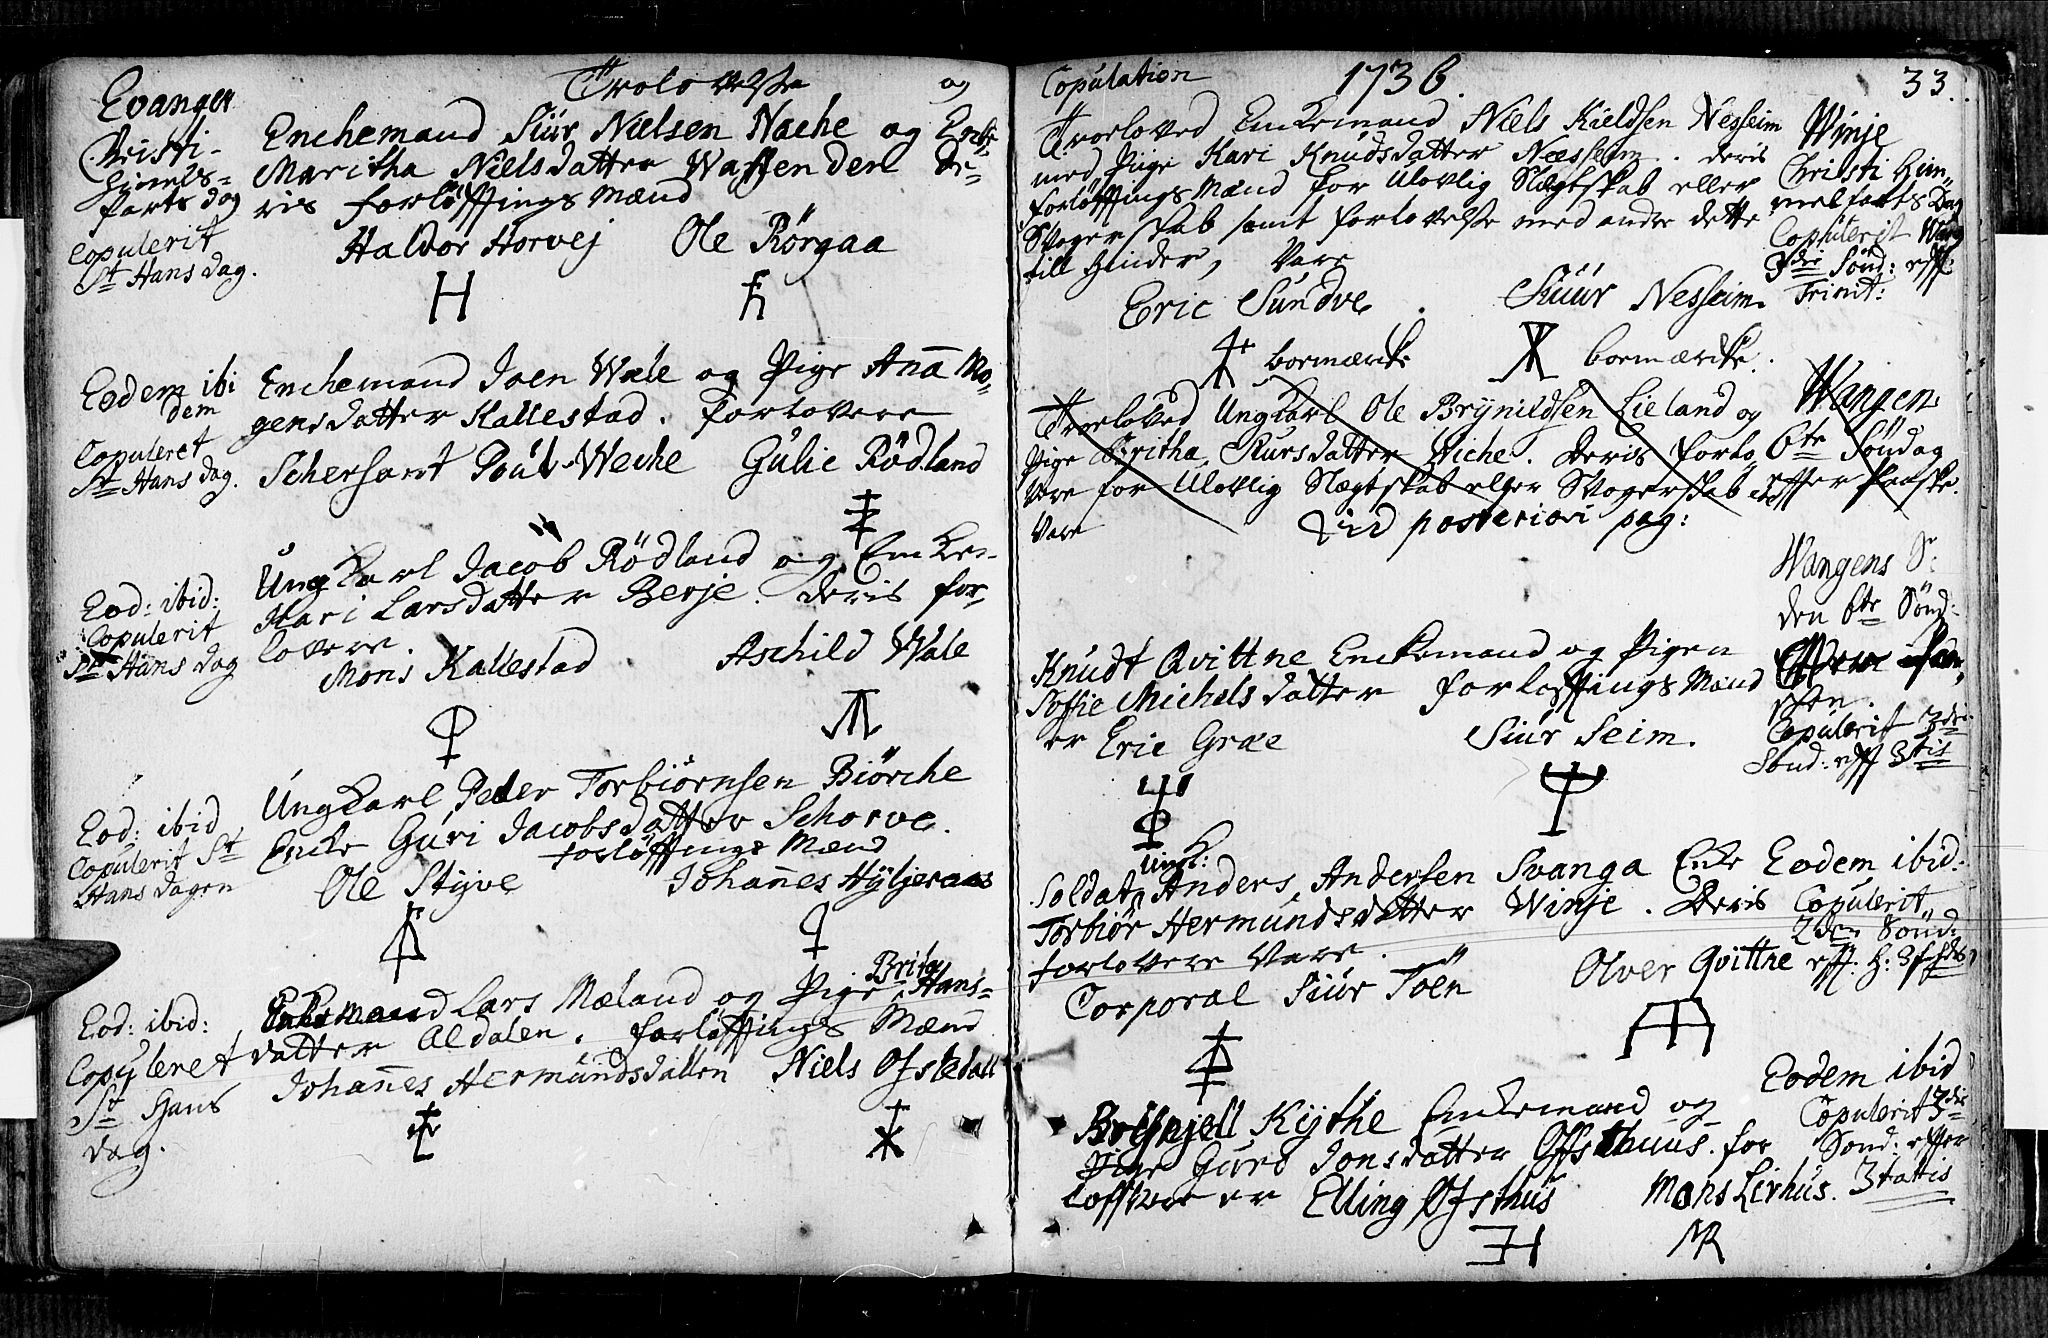 Evanger
Trolovelse og
Christi
Himels-
farts dag
Copulerit
St Hans dag.
Enchemand Siür Nielsen Næhe og Enke
Maritha Nielsdatter Wassenden De-
ris forløfftings Mænd
Haldor Horvej Ole Rörgaa
H
Eodem ibi
dem
Copuleret
St Hans dag.
Enchemand Joen Wæle og Pige Aña Mo-
gensdatter Kallestad. forlovere
Schersant Poül Weche Gülic Rödland
Eod: ibid:
Copulerit
St Hans dag
Ung Karl Jacob Rödland og Encke
Kari Larsdatter Berje. Deris for-
lovere.
Mons Kallestad Aschild Wæle
Eod: ibid
Copulerit St
Hans dagen
Ung Karl Peder Torbiörnsen Biörche
Encke Güri Jacobsdatter Schorve.
forlöfftings Mænd
Ole Styve Johañes Hyljeraas
Eod: ibid:
Copuleret
St Hans
dag.
Enkemand Lars Mæland og Pige Brita Hans-
datter Aldalen. forløfftings Mænd
Johañes Hermündsdallen Niels Ofstedall
Copulation 1736. 33.
Troeloved Enkemand Niels Kieldsen Nesseim
med Pige Kari Knüdsdatter Næsseim. deris
forløfftings Mænd for Ulovlig Slægtskab eller
Svogerskab samt forlovelse med andre dette
till Hinder, Vare
Eric Sündve. Siüür Nesseim.
boemærcke boemærcke.
Winje
Christi Him-
melfarts Dag
Copulerit
3die Sönd: eff:
Trinit:
Troeloved Ungkarl Ole Brynildsen Lieland og
Pige Britha Siursdatter Wiche. Deris forlo
Vere for Ulovlig Slægtskab eller Svogerskab
Vare Vid posteriori pag:
Wangen
6te Söndag
effter Paaske.
Wangens
den 6te Sönd:
Copulerit 3die
Sönd: eff 3tis
Knüdt Qvittne Enckemand og Pigen
Soffie Michelsdatter forløfftings Mænd
er Eric Græe Siür Seim.
Soldat, Ungk: Anders Andersen Svanga Enke
Torbiör Hermündsdatter Winje. Deris
forlovere Vare.
Corporal Siür Töen Olver Qvittne
Eodem ibid:
Copulerit
2den Sönd:
Brynjell Kythe Enkemand og
Pige Guro Jonsdatter Offsthuus. for
loffvere er Elling Ofsthüs Mons Lirhüs.
EH MR
Eodem ibid
Copulerit 3die
Sond: effter
3tatis